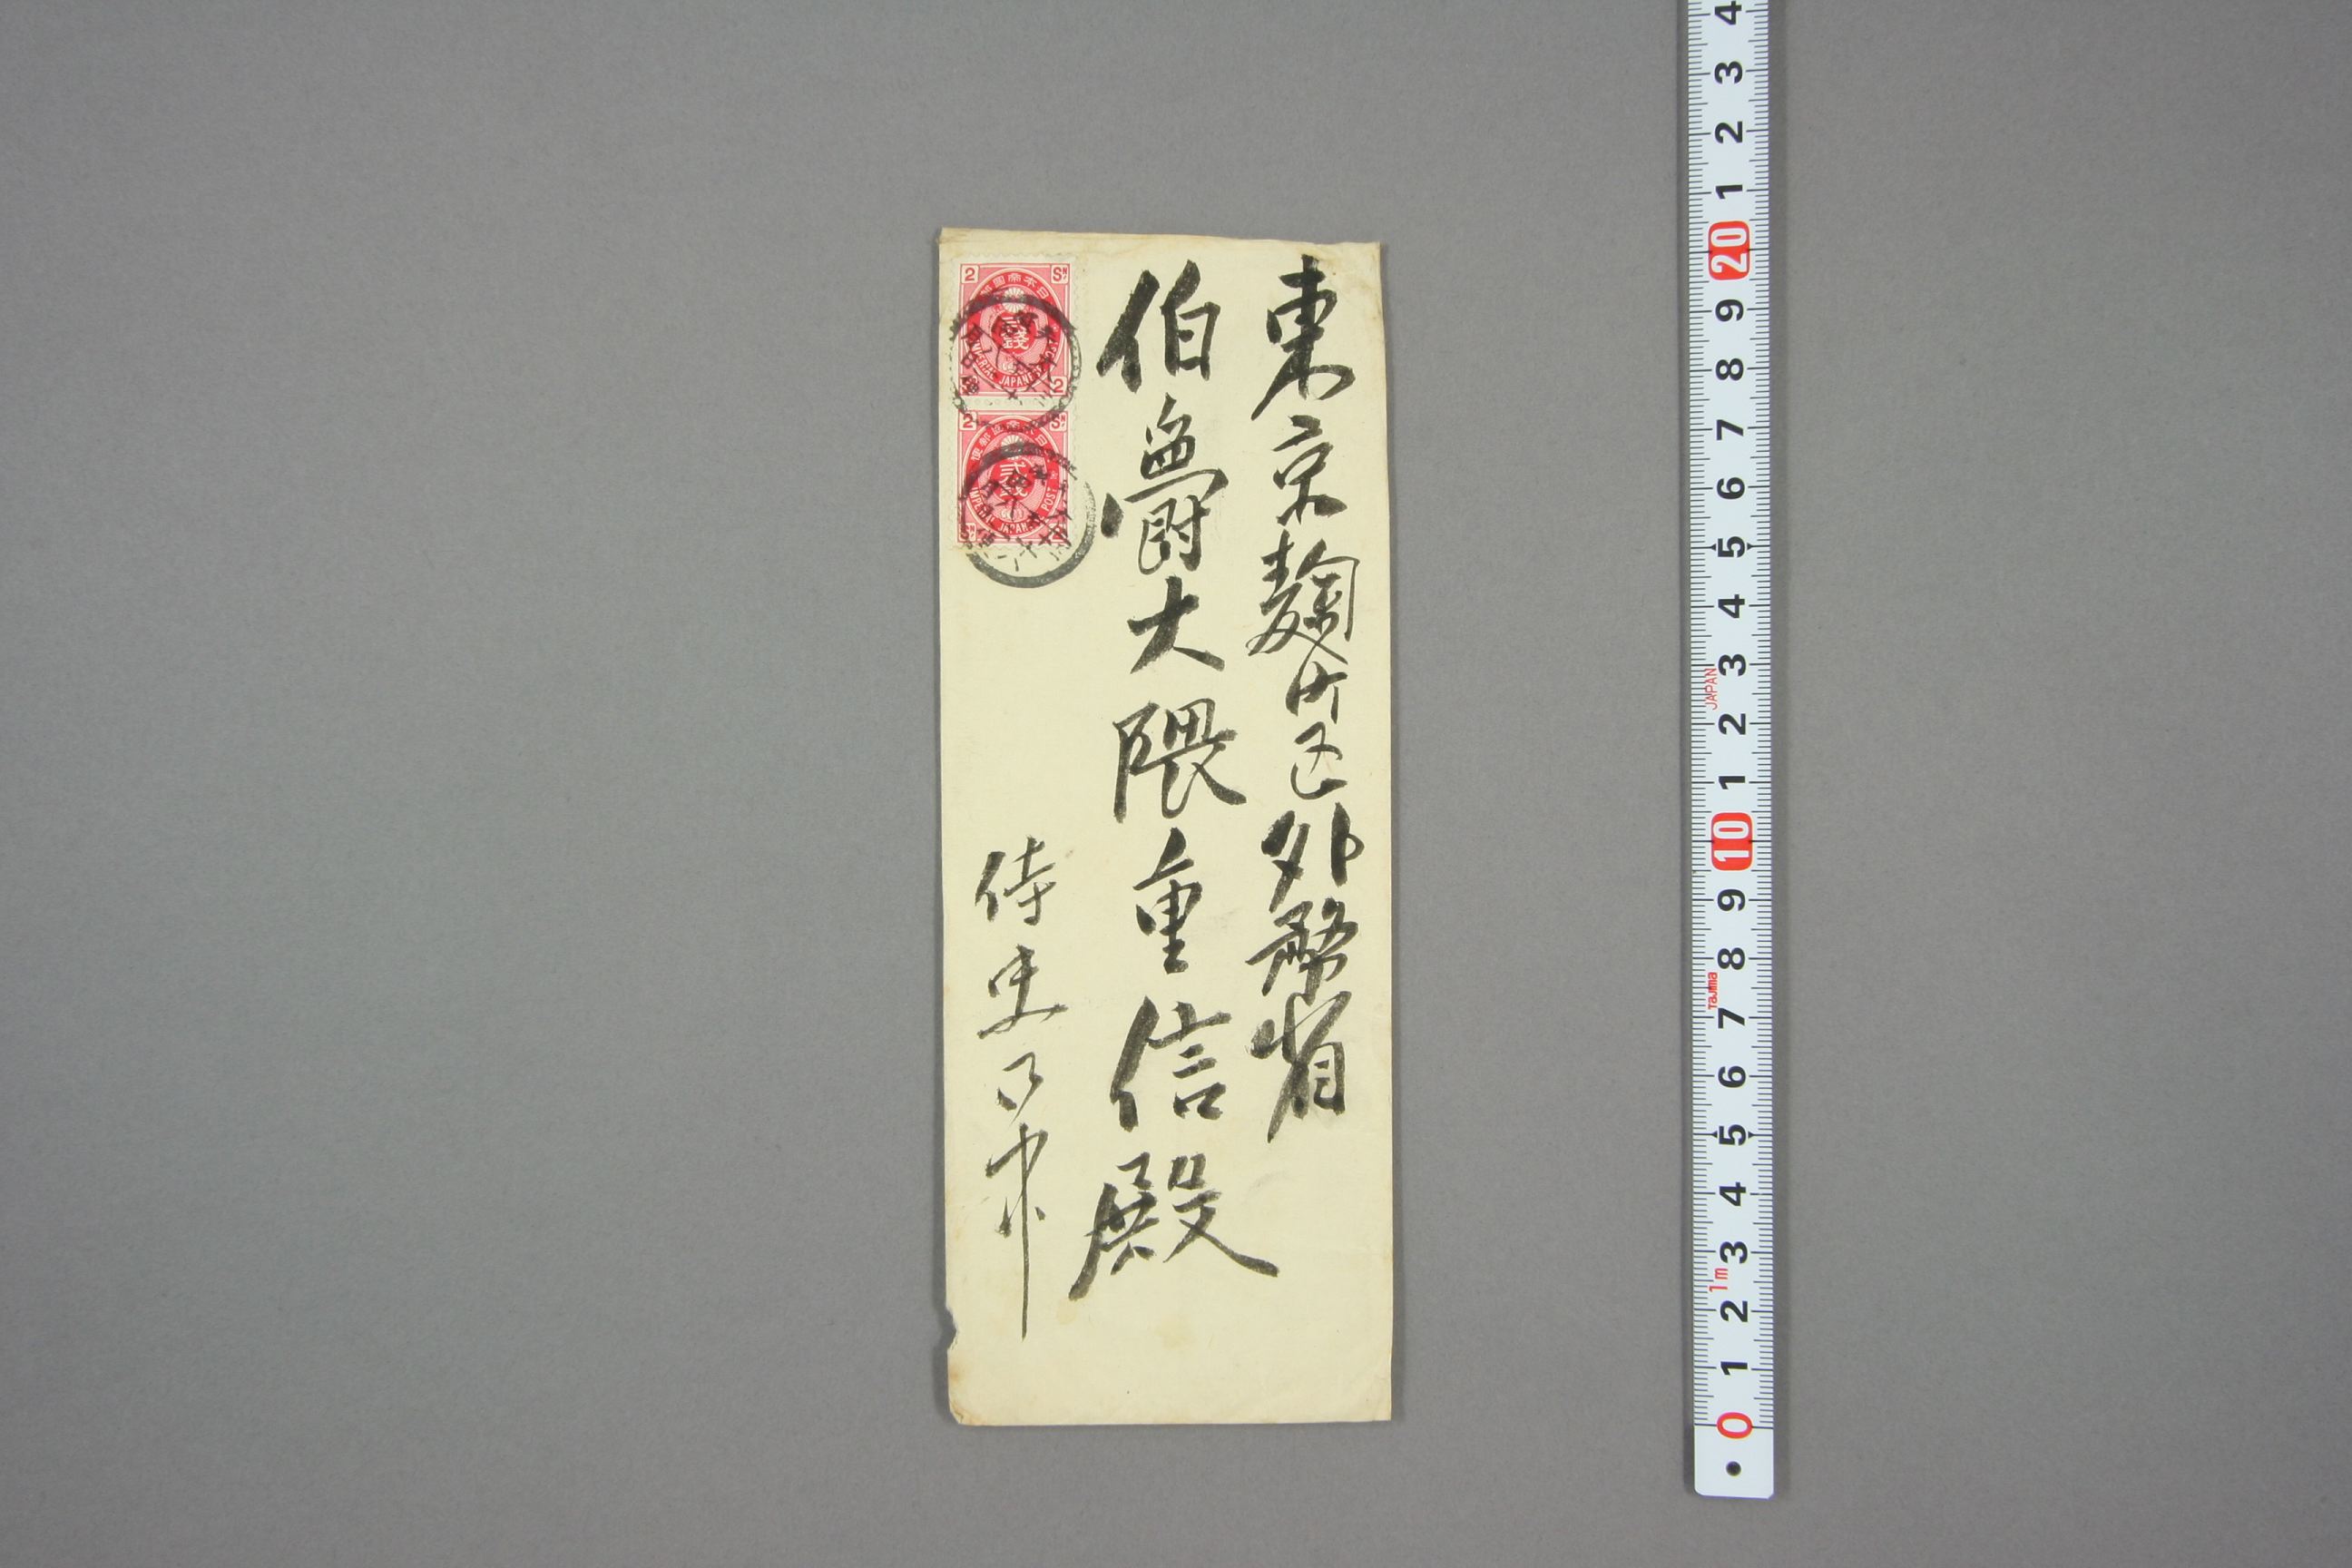 東京麹町区外務省
伯爵大隈重信殿
侍史御中
2 SN
大日本帝國郵便
貳錢
IMPERIAL JAPANESE POST
2
2 SN
大日本帝國郵便
貳錢
IMPERIAL JAPANESE POST
SN
4
3
2
1
20
9
8
7
6
5
4
3
JAPAN
2
1
10
9
8
Tajima
7
6
5
4
3
1m
2
1
0